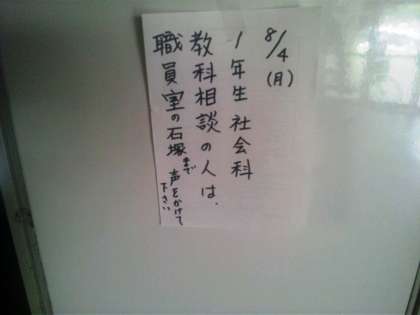 8/4(月)
1年生 社会科
教科相談の人は、
職員室の石塚まで声をかけて下さい